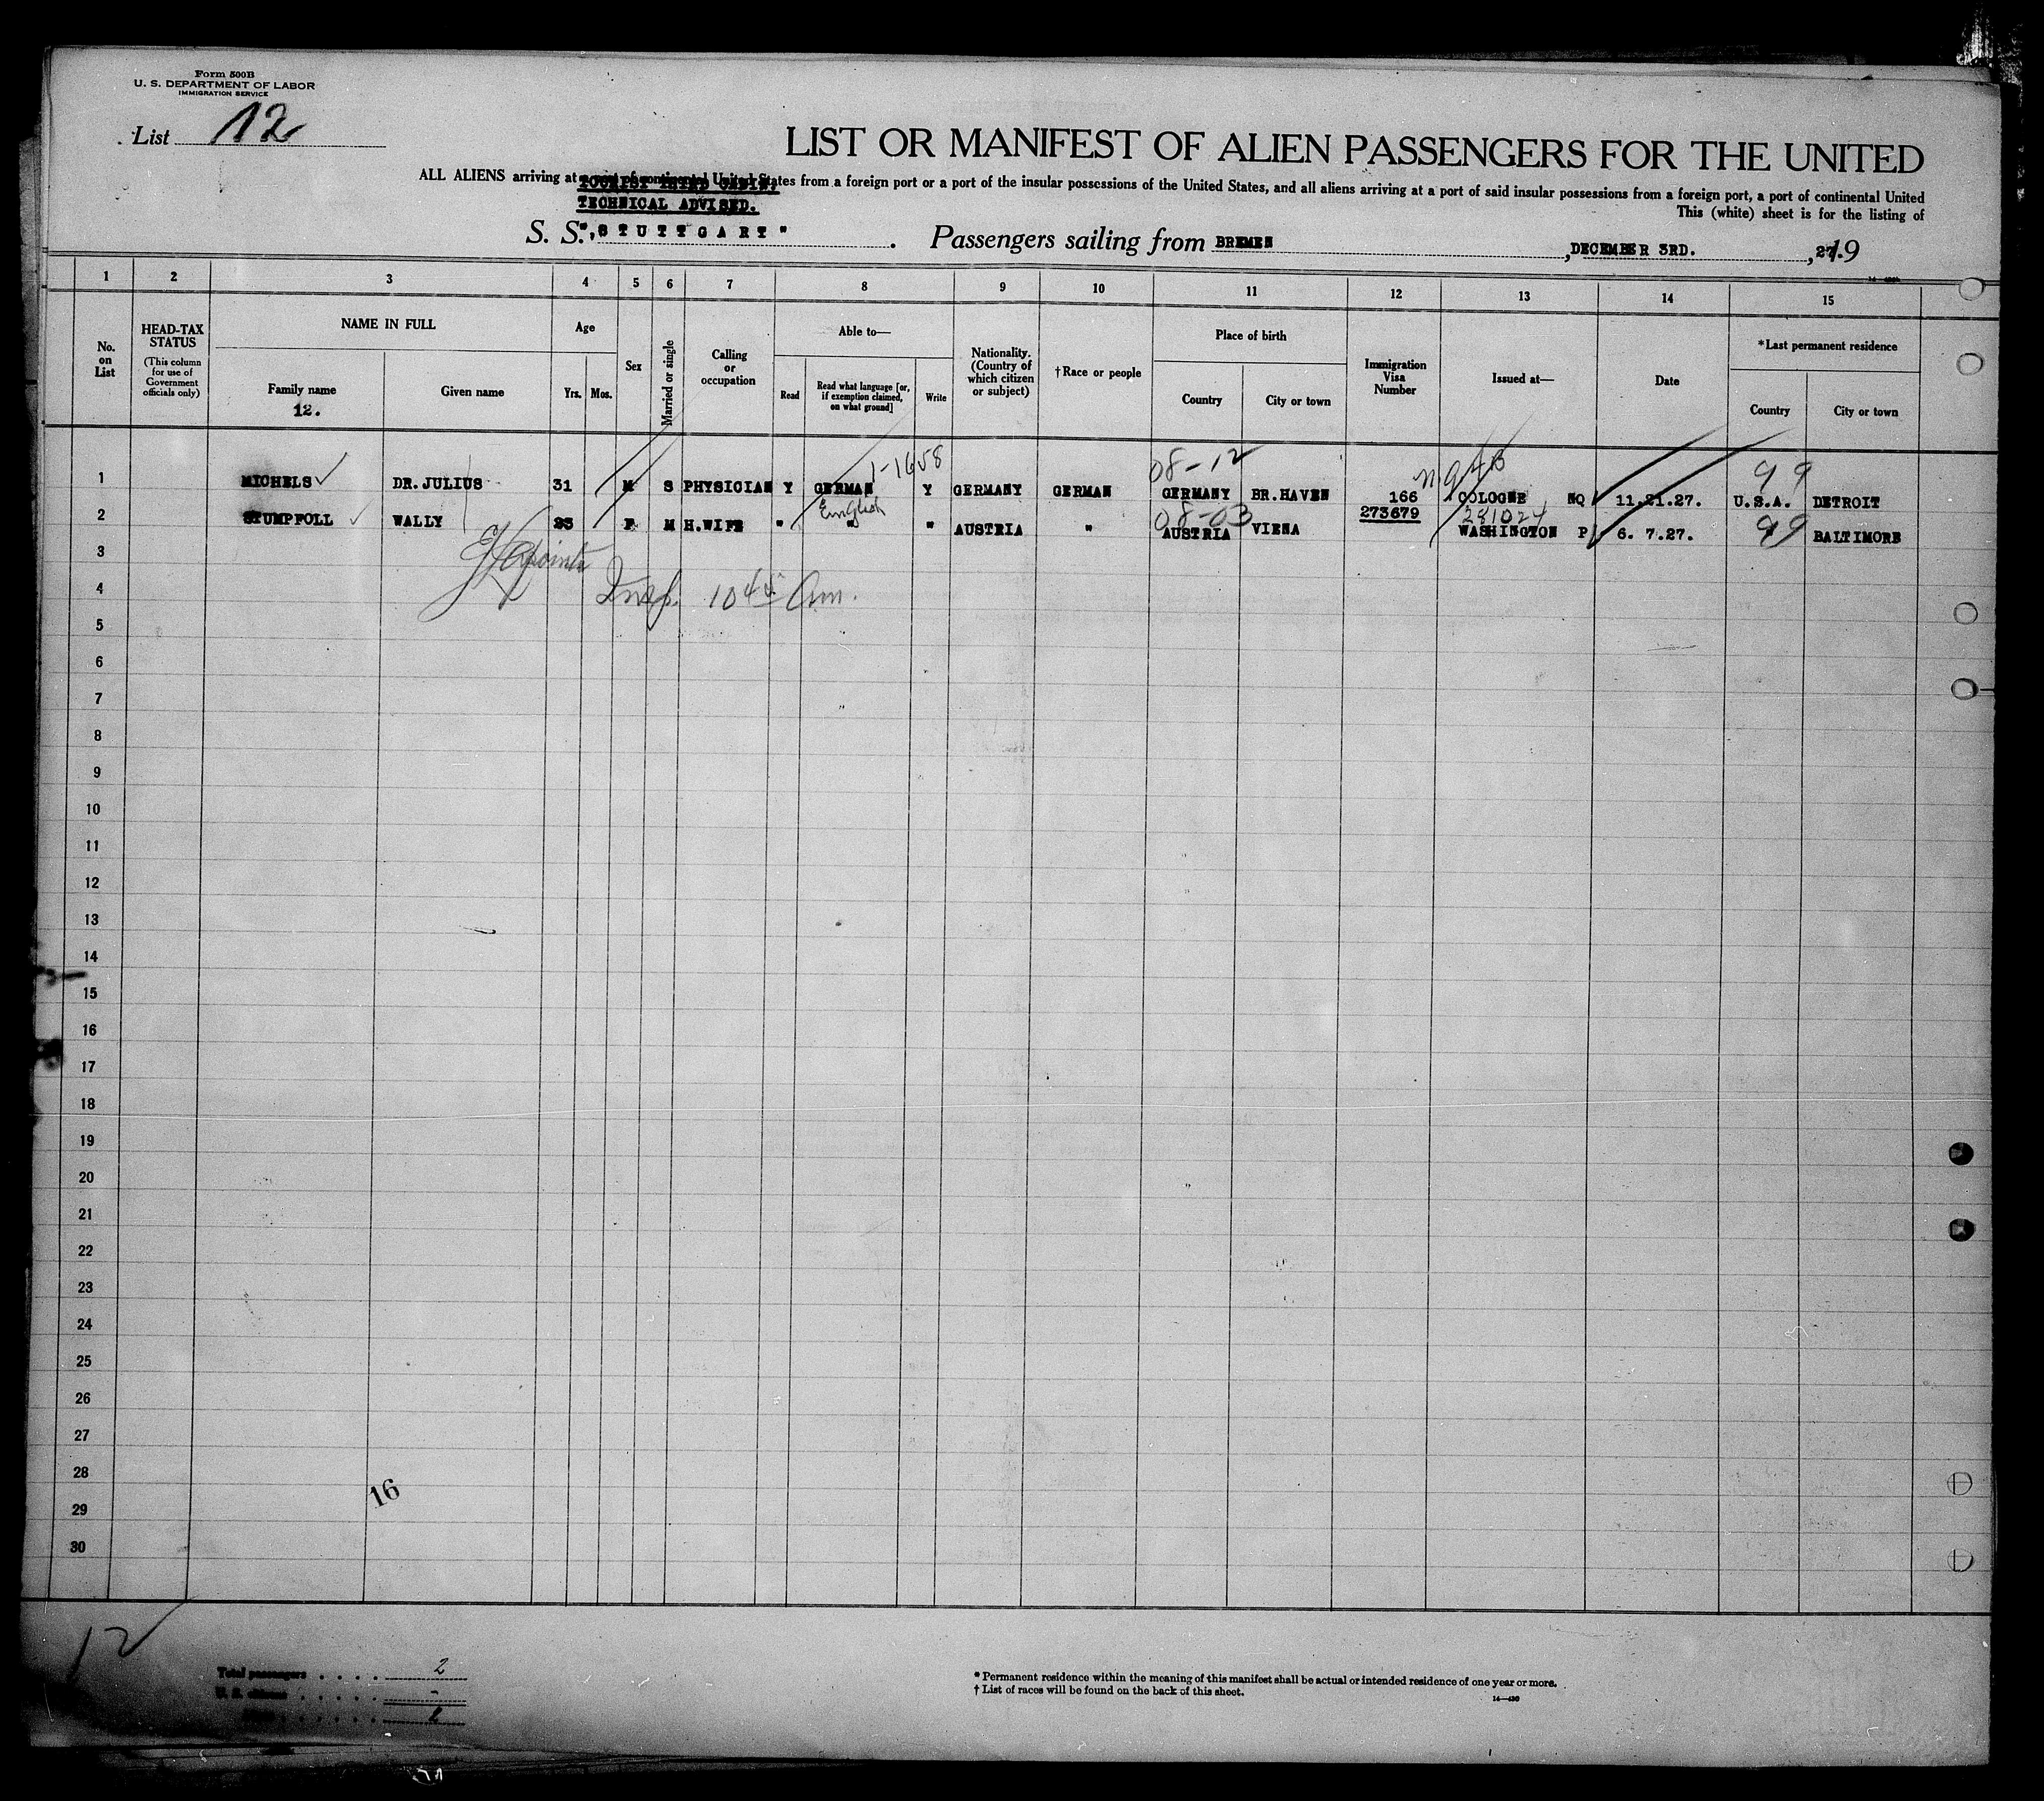 Form 500B
U. S. DEPARTMENT OF LABOR
IMMIGRATION SERVICE
List 12
LIST OR MANIFEST OF ALIEN PASSENGERS FOR THE UNITED
ALL ALIENS arriving at a port of continental United States from a foreign port or a port of the insular possessions of the United States, and all aliens arriving at a port of said insular possessions from a foreign port, a port of continental United
TOURIST THIRD CABIN,
TECHNICAL ADVISED.
This (white) sheet is for the listing of
S. S. "STUTTGART" . Passengers sailing from BREMEN , DECEMBER 3RD. , 27.19
1 2 3 4 5 6 7 8 9 10 11 12 13 14 15
No. on List
HEAD-TAX STATUS
(This column for use of Government officials only)
NAME IN FULL
Family name
12.
Given name
Age
Yrs. Mos.
Sex
Married or single
Calling or occupation
Able to—
Read
Read what language [or, if exemption claimed, on what ground]
Write
Nationality. (Country of which citizen or subject)
†Race or people
Place of birth
Country
City or town
Immigration Visa Number
Issued at—
Date
*Last permanent residence
Country
City or town
1-1658 08-12 99
1 MICHELS DR. JULIUS 31 M S PHYSICIAN Y GERMAN Y GERMANY GERMAN GERMANY BR.HAVEN 166 COLOGNE NQ 11.21.27. U.S.A. DETROIT
English 08-03 281024 99
2 STUMPFOLL WALLY 23 F M H.WIFE " " " AUSTRIA " AUSTRIA VIENA 273679 WASHINGTON P 6. 7.27. " BALTIMORE
3
4 Insp. 10 45 Am.
5
6
7
8
9
10
11
12
13
14
15
16
17
18
19
20
21
22
23
24
25
26
27
28
16
29
30
12
Total passengers . . . . 2
U. S. citizens . . . . . -
2
* Permanent residence within the meaning of this manifest shall be actual or intended residence of one year or more.
† List of races will be found on the back of this sheet.
14—430